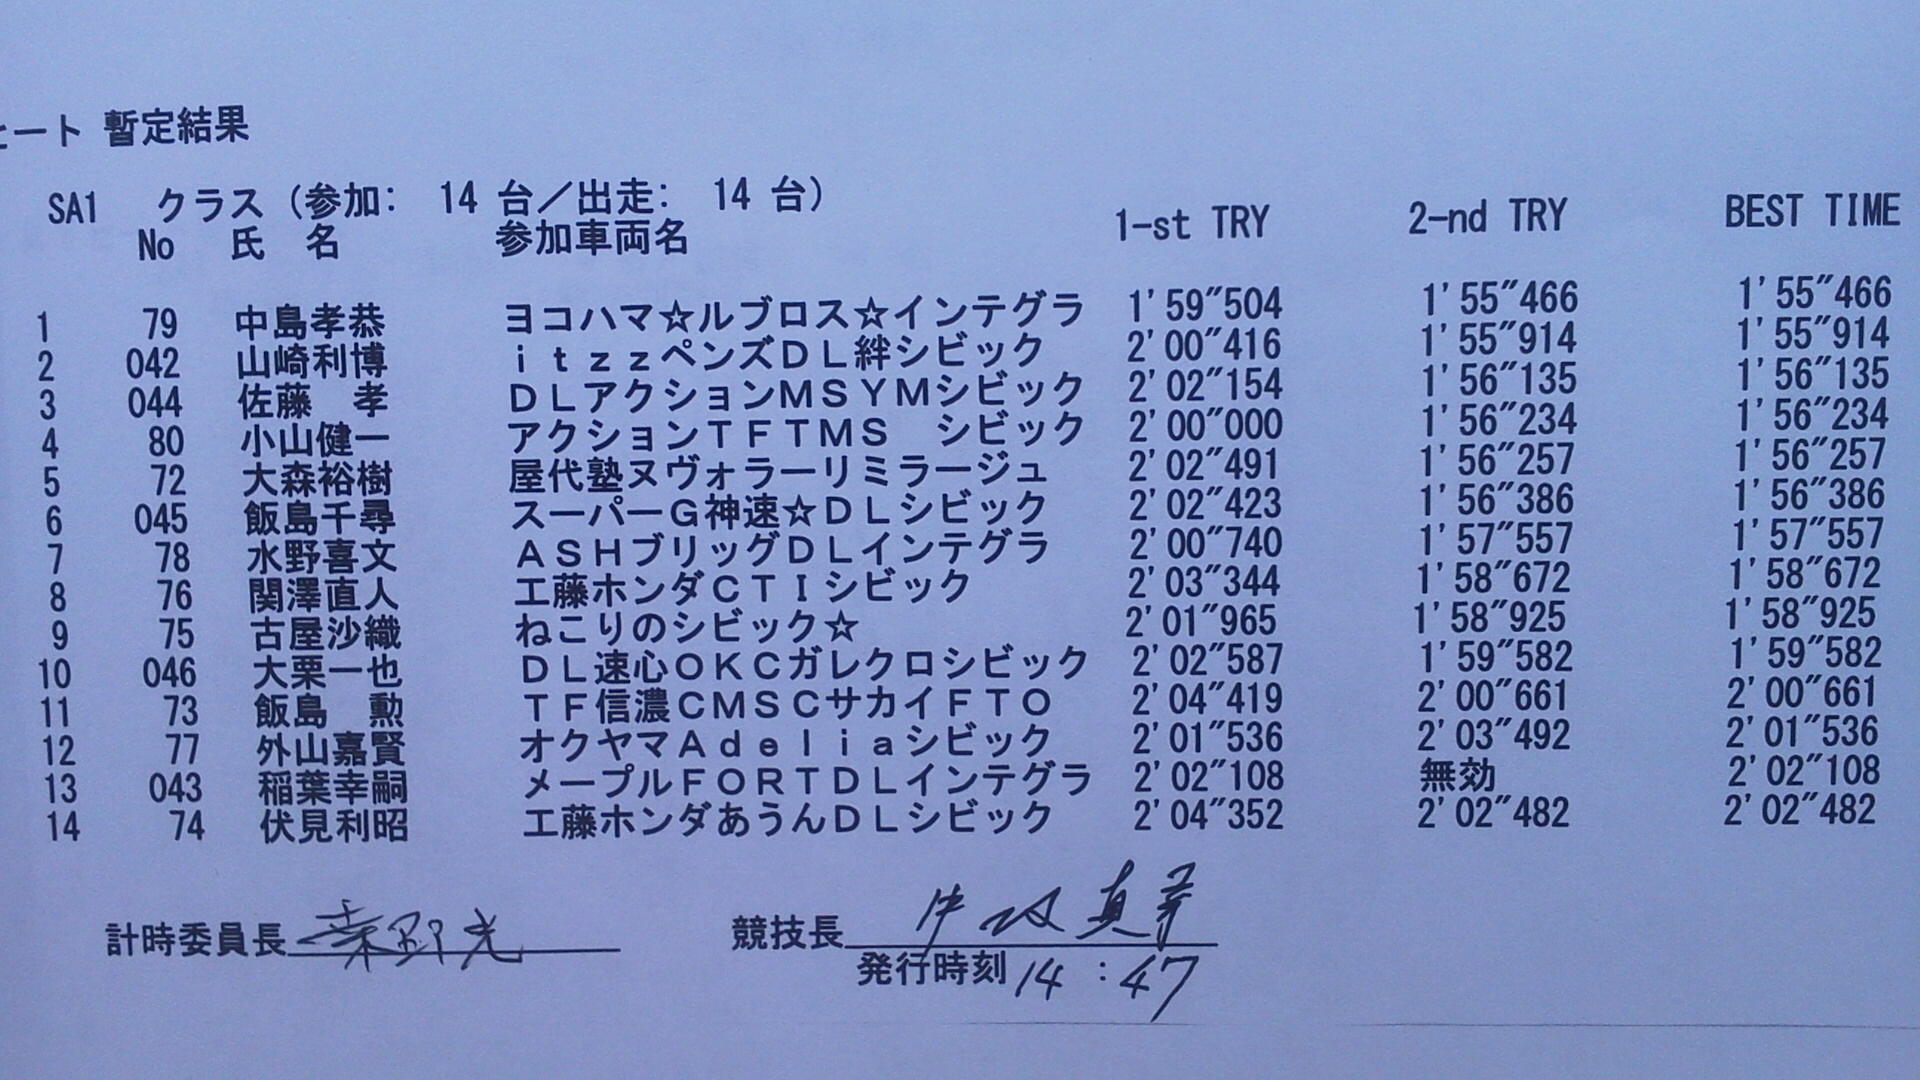 ヒート 暫定結果
SA1 クラス (参加: 14 台/出走: 14 台)
No 氏 名 参加車両名 1-st TRY 2-nd TRY BEST TIME
1 79 中島孝恭 ヨコハマ☆ルブロス☆インテグラ 1'59"504 1'55"466 1'55"466
2 042 山崎利博 itzzペンズDL絆シビック 2'00"416 1'55"914 1'55"914
3 044 佐藤 孝 DLアクションMSYMシビック 2'02"154 1'56"135 1'56"135
4 80 小山健一 アクションTFTMS シビック 2'00"000 1'56"234 1'56"234
5 72 大森裕樹 屋代塾ヌヴォラーリミラージュ 2'02"491 1'56"257 1'56"257
6 045 飯島千尋 スーパーG神速☆DLシビック 2'02"423 1'56"386 1'56"386
7 78 水野喜文 ASHブリッグDLインテグラ 2'00"740 1'57"557 1'57"557
8 76 関澤直人 工藤ホンダCTIシビック 2'03"344 1'58"672 1'58"672
9 75 古屋沙織 ねこりのシビック☆ 2'01"965 1'58"925 1'58"925
10 046 大栗一也 DL速心OKCガレクロシビック 2'02"587 1'59"582 1'59"582
11 73 飯島 勲 TF信濃CMSCサカイFTO 2'04"419 2'00"661 2'00"661
12 77 外山嘉賢 オクヤマAdeliaシビック 2'01"536 2'03"492 2'01"536
13 043 稲葉幸嗣 メープルFORTDLインテグラ 2'02"108 無効 2'02"108
14 74 伏見利昭 工藤ホンダあうんDLシビック 2'04"352 2'02"482 2'02"482
計時委員長 競技長
発行時刻 14:47